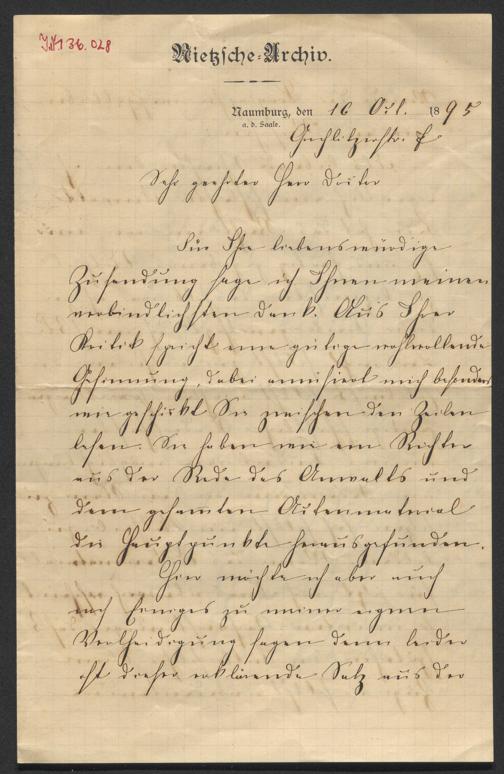 Nietzsche-Archiv.
Naumburg, den 16 Okt. 1895
a. d. Saale.
Sehr geehrter Herr Doctor
Für Ihre liebenswürdige
Zusendung sage ich Ihnen meinen
verbindlichsten Dank. Aus Ihrer
Kritik spricht eine gütige wohlwollende
Gesinnung, dabei amüsiert mich besonders
wie geschickt Sie zwischen den Zeilen
lesen. Sie haben wie ein Richter
aus der Rede des Anwalts und
dem gesamten Actenmaterial
die Hauptpunkte herausgefunden.
Hier möchte ich aber auch
noch Einiges zu meiner eignen
Vertheidigung sagen denn leider
ist dieser erklärende Satz aus der